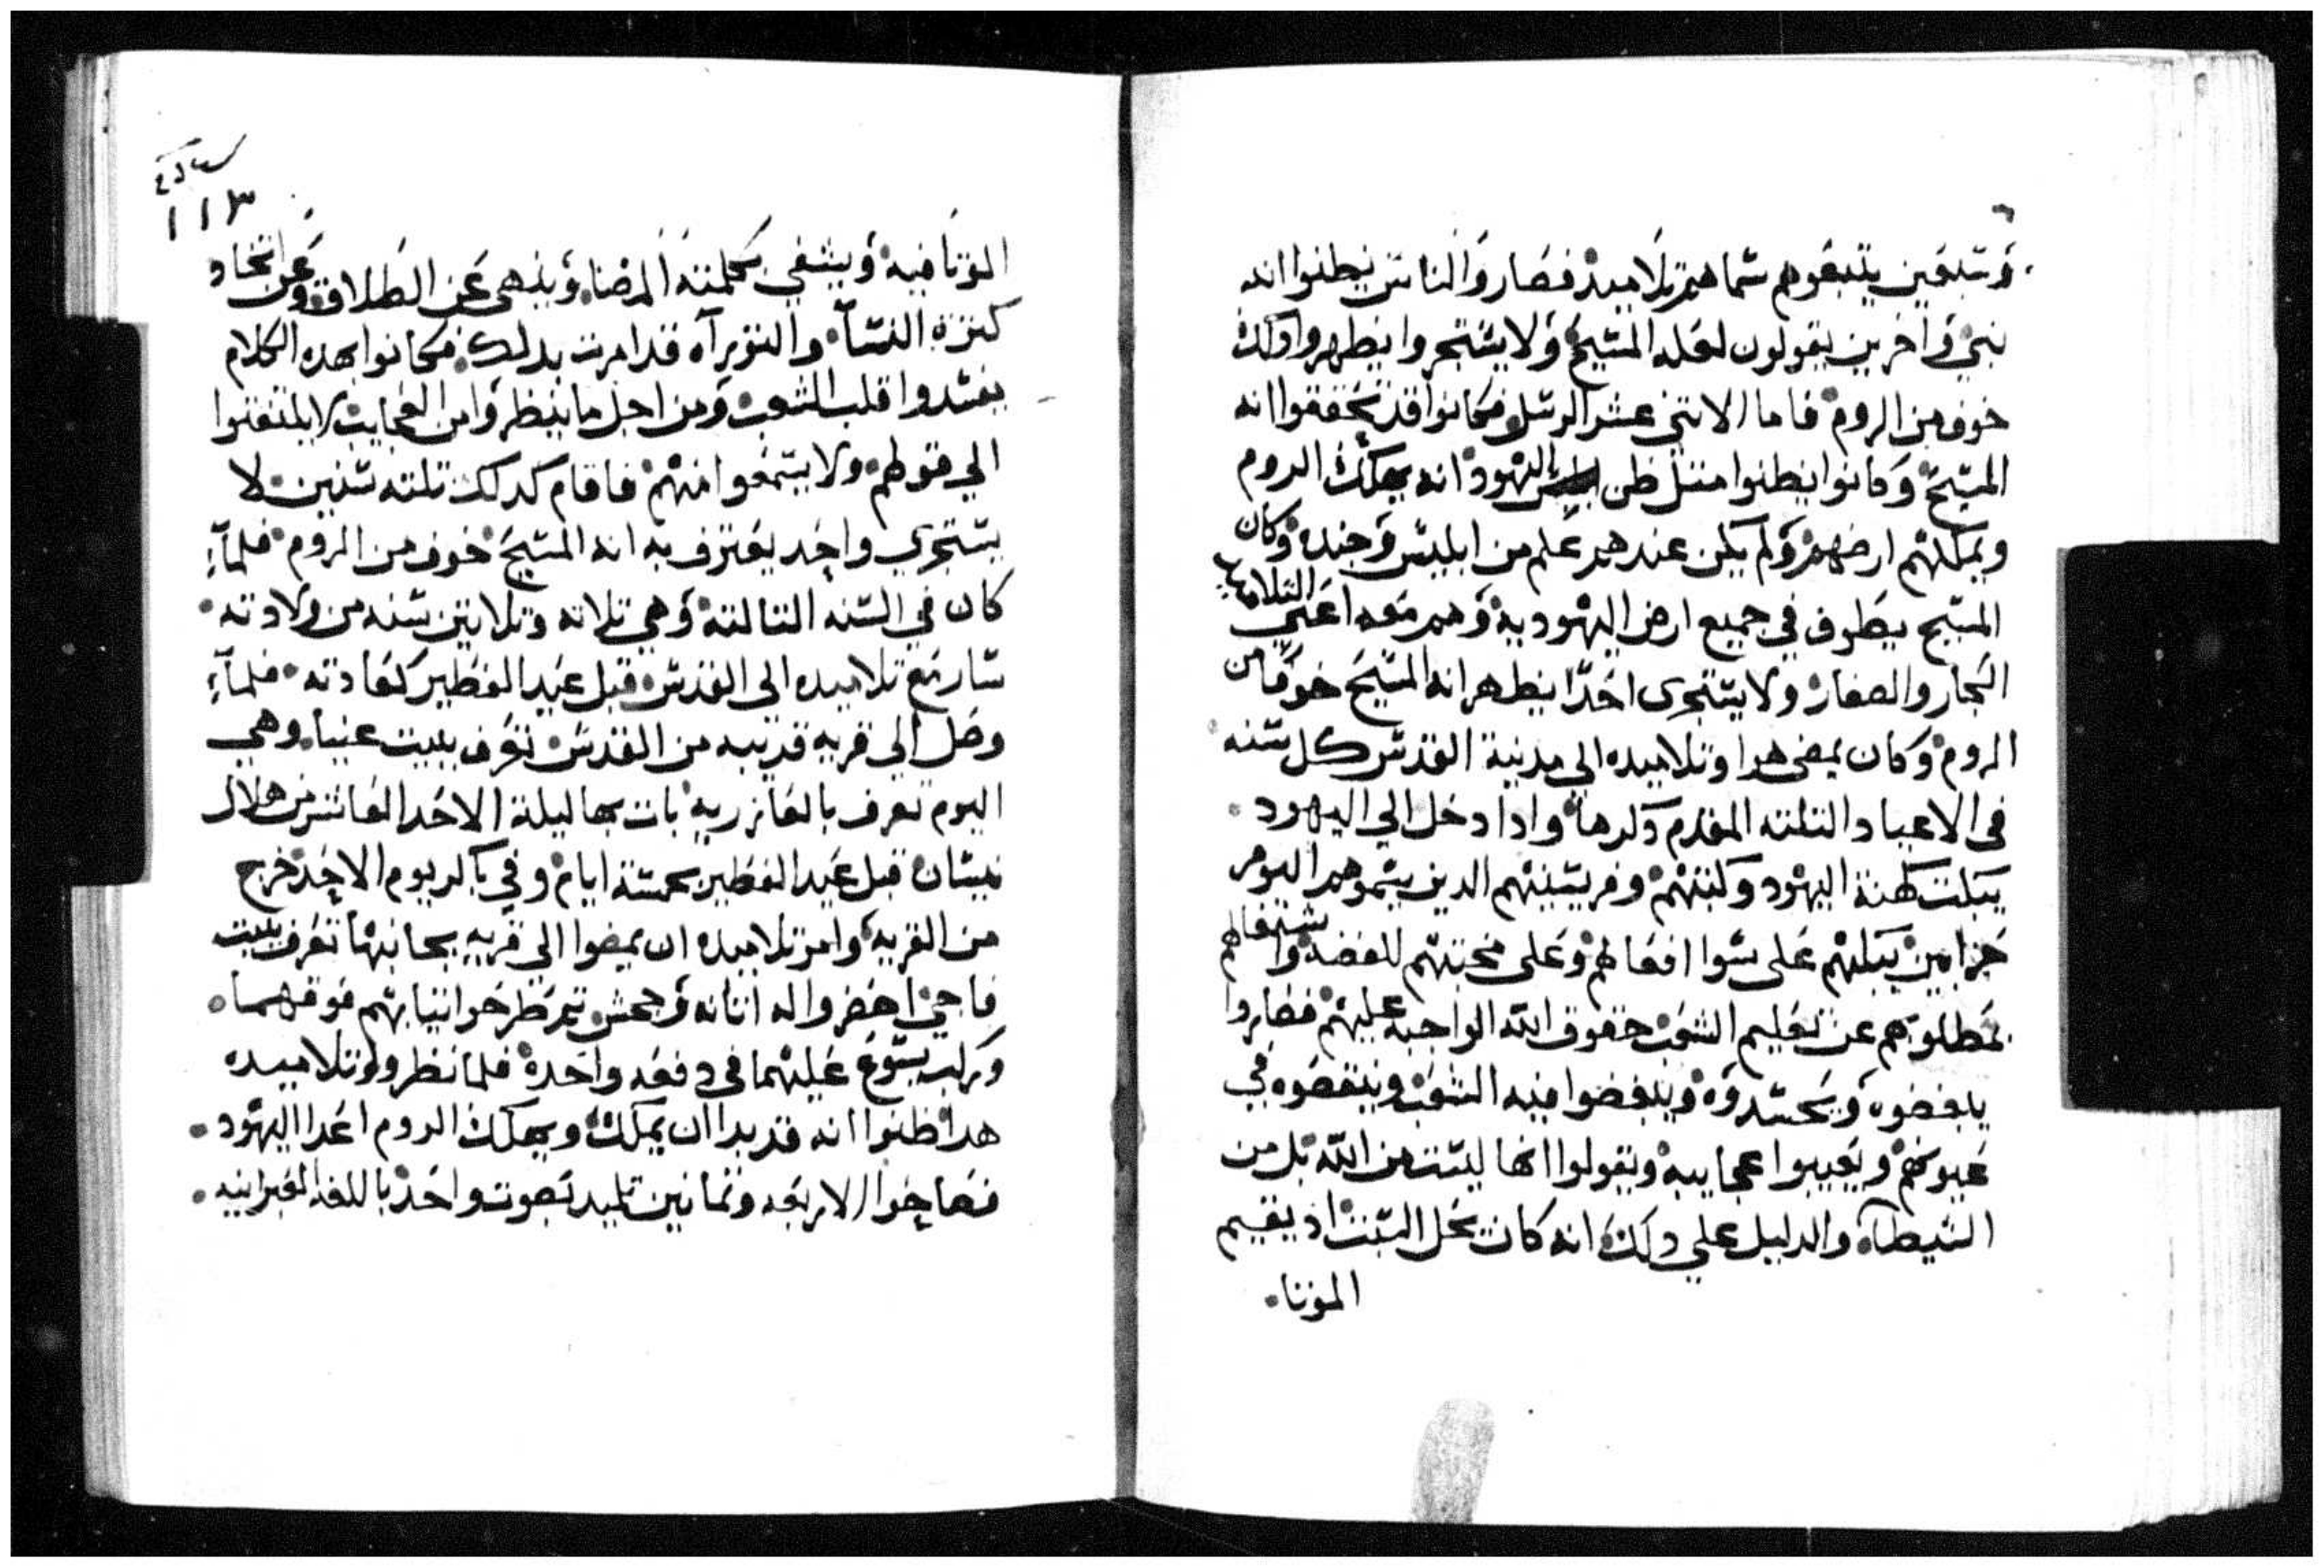 وسبعين يتبعوهم سماهم تلاميد فصاروا الناس يظنوا انه
نبي واخرين يقولون لعله المسيح ولا يستجروا يظهروا دلك
خوف من الروم فاما الاتني عشر الرسل فكانوا قد تحققوا انه
المسيح وكانوا يظنوا متل ظن اليهود انه يهلك الروم
ويملكهم ارضهم ولم يكن عندهم علم من ابليس وجنده وكان
المسيح يطوف في جميع ارض اليهودية وهم معه اعني التلاميد
الكبار والصغار ولا يستجرى احدا يظهر انه المسيح خوفا من
الروم وكان يمضي هدا وتلاميده الي مدينة القدس كل سنه
في الاعياد التلته المقدم دكرها وادا دخل الي اليهود
يبكت كهنة اليهود وكتبتهم وفريسينهم الدين يسموهم اليوم
حزامين يبكتهم على سوا افعالهم وعلى محبتهم للفضه واشتغالهم
بمطلوبهم عن تعليم الشعب حقوق الله الواجبه عليهم فصاروا
يبغضوه ويحسدوه ويبغضوا فيه الشعب وينقصوه في
عيونهم ويعيبوا عجايبه ويقولوا انها ليست من الله بل من
الشيطان والدليل علي دلك انه كان يحل السبت اد يقيم
الموتا
١١٣
الموتا فيه ويشفي بكلمته المرضا وينهي عن الطلاق وعن اتخاد
كترة النسا والتوراه قد امرت بدلك فكانوا بهده الكلام
يفسدوا قلب الشعب ومن اجل ما ينظروا من العجايب لا يلتفتوا
الي قولهم ولا يستمعوا منهم فاقام كدلك تلته سنين لا
يستجري واحد يعترف به انه المسيح خوف من الروم فلما
كان في السنه التالتة وهي تلاته وتلاتين سنه من ولادته
سار مع تلاميده الى القدس قبل عيد الفطير كعادته فلما
وصل الي قريه قريبه من القدس تعرف ببيت عنيا وهي
اليوم تعرف بالعازريه بات بها ليلة الاحد العاشر من هلال
نيسان قبل عيد الفطير بخمسة ايام وفي باكر يوم الاحد خرج
من القريه وامر تلاميده ان يمضوا الي قريه بجانبها تعرف ببيت
فاجي احضروا له اتانه وجحش تم طرحوا تيابهم فوقهما
وركب يسوع عليهما في دفعه واحدة فلما نظروا تلاميده
هدا ظنوا انه قد بدا ان يملك ويهلك الروم اعدا اليهود
فصاحوا الاربعه وتمانين تلميد بصوت واحد باللغه العبرانيه